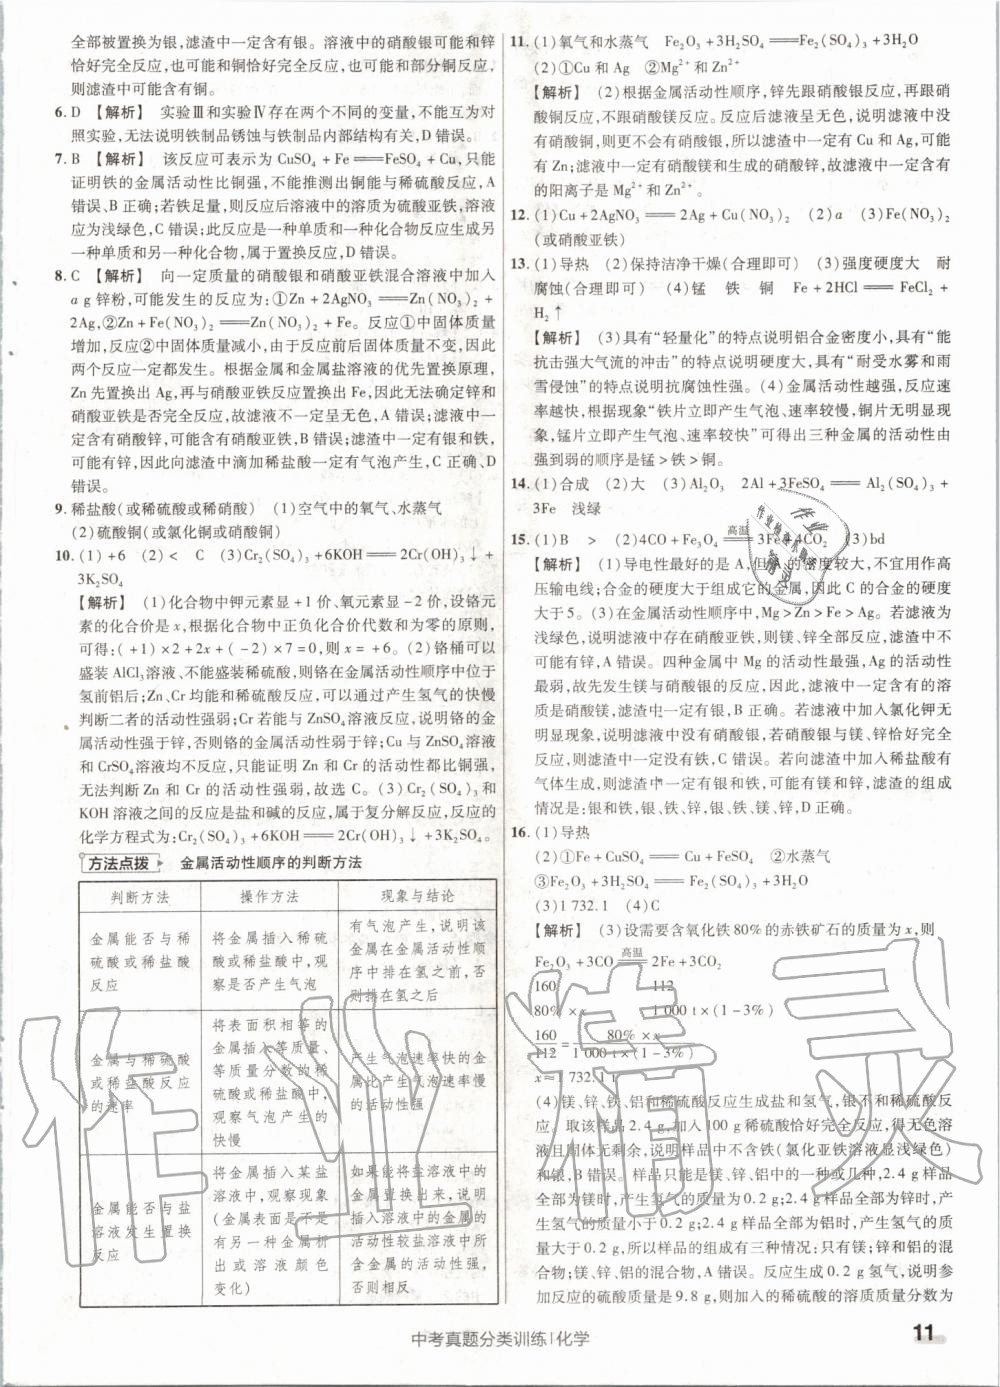 全部被置换为银,滤渣中一定含有银。溶液中的硝酸银可能和锌
恰好完全反应,也可能和铜恰好完全反应,也可能和部分铜反应,
则滤渣中可能含有铜。
6. D 【解析】 实验Ⅲ和实验Ⅳ存在两个不同的变量,不能互为对
照实验,无法说明铁制品锈蚀与铁制品内部结构有关,D错误。
7. B 【解析】 该反应可表示为 CuSO₄ + Fe ══ FeSO₄ + Cu,只能
证明铁的金属活动性比铜强,不能推测出铜能与稀硫酸反应,A
错误、B正确;若铁足量,则反应后溶液中的溶质为硫酸亚铁,溶液
应为浅绿色,C错误;此反应是一种单质和一种化合物反应生成另
一种单质和另一种化合物,属于置换反应,D错误。
8. C 【解析】 向一定质量的硝酸银和硝酸亚铁混合溶液中加入
a g锌粉,可能发生的反应为:①Zn + 2AgNO₃ ══ Zn(NO₃)₂ +
2Ag,②Zn + Fe(NO₃)₂ ══ Zn(NO₃)₂ + Fe。反应①中固体质量
增加,反应②中固体质量减小,由于反应前后固体质量相等,因此
两个反应一定都发生。根据金属和金属盐溶液的优先置换原理,
Zn先置换出Ag,再与硝酸亚铁反应置换出Fe,因此无法确定锌和
硝酸亚铁是否完全反应,故滤液不一定呈无色,A错误;滤液中一
定含有硝酸锌,可能含有硝酸亚铁,B错误;滤渣中一定有银和铁,
可能有锌,因此向滤渣中滴加稀盐酸一定有气泡产生,C正确、D
错误。
9. 稀盐酸(或稀硫酸或稀硝酸) (1)空气中的氧气、水蒸气
(2)硫酸铜(或氯化铜或硝酸铜)
10. (1)+6 (2)< C (3)Cr₂(SO₄)₃+6KOH ══ 2Cr(OH)₃↓+
3K₂SO₄
【解析】 (1)化合物中钾元素显+1价、氧元素显-2价,设铬元
素的化合价是x,根据化合物中正负化合价代数和为零的原则,
可得:(+1)×2+2x+(-2)×7=0,则x=+6。(2)铬桶可以
盛装AlCl₃溶液、不能盛装稀硫酸,则铬在金属活动性顺序中位于
氢前铝后;Zn、Cr均能和稀硫酸反应,可以通过产生氢气的快慢
判断二者的活动性强弱;Cr若能与ZnSO₄溶液反应,说明铬的金
属活动性强于锌,否则铬的金属活动性弱于锌;Cu与ZnSO₄溶液
和CrSO₄溶液均不反应,只能证明Zn和Cr的活动性都比铜强,
无法判断Zn和Cr的活动性强弱,故选C。(3)Cr₂(SO₄)₃和
KOH溶液之间的反应是盐和碱的反应,属于复分解反应,反应的
化学方程式为:Cr₂(SO₄)₃+6KOH ══ 2Cr(OH)₃↓+3K₂SO₄。
方法点拨 金属活动性顺序的判断方法
判断方法 操作方法 现象与结论
金属能否与稀
硫酸或稀盐酸
反应
将金属插入稀硫
酸或稀盐酸中,观
察是否产生气泡
有气泡产生,说明该
金属在金属活动性顺
序中排在氢之前,否
则排在氢之后
金属与稀硫酸
或稀盐酸反应
的速率
将表面积相等的
金属插入等质量、
等质量分数的稀
硫酸或稀盐酸中,
观察气泡产生的
快慢
产生气泡速率快的金
属比产生气泡速率慢
的活动性强
金属能否与盐
溶液发生置换
反应
将金属插入某盐
溶液中,观察现象
(金属表面是不是
有另一种金属析
出或溶液颜色
变化)
如果能将盐溶液中的
金属置换出来,说明
插入溶液中的金属的
活动性较盐溶液中所
含金属的活动性强,
否则相反
11. (1)氧气和水蒸气 Fe₂O₃+3H₂SO₄ ══ Fe₂(SO₄)₃+3H₂O
(2)①Cu和Ag ②Mg²⁺和Zn²⁺
【解析】 (2)根据金属活动性顺序,锌先跟硝酸银反应,再跟硝
酸铜反应,不跟硝酸镁反应。反应后滤液呈无色,说明滤液中没
有硝酸铜,则更不会有硝酸银,所以滤渣中一定有Cu和Ag,可能
有Zn;滤液中一定有硝酸镁和生成的硝酸锌,故滤液中一定含有
的阳离子是Mg²⁺和Zn²⁺。
12. (1)Cu+2AgNO₃ ══ 2Ag+Cu(NO₃)₂ (2)a (3)Fe(NO₃)₂
(或硝酸亚铁)
13. (1)导热 (2)保持洁净干燥(合理即可) (3)强度硬度大 耐
腐蚀(合理即可) (4)锰 铁 铜 Fe+2HCl ══ FeCl₂+
H₂↑
【解析】 (3)具有“轻量化”的特点说明铝合金密度小,具有“能
抗击强大气流的冲击”的特点说明硬度大,具有“耐受水雾和雨
雪侵蚀”的特点说明抗腐蚀性强。(4)金属活动性越强,反应速
率越快,根据现象“铁片立即产生气泡、速率较慢,铜片无明显现
象,锰片立即产生气泡、速率较快”可得出三种金属的活动性由
强到弱的顺序是锰>铁>铜。
14. (1)合成 (2)大 (3)Al₂O₃ 2Al+3FeSO₄ ══ Al₂(SO₄)₃+
3Fe 浅绿
15. (1)B > (2)4CO+Fe₃O₄ 高温══ 3Fe+4CO₂ (3)bd
【解析】 (1)导电性最好的是A,但A的密度较大,不宜用作高
压输电线;合金的硬度大于组成它的金属,因此C的合金的硬度
大于5。(3)在金属活动性顺序中,Mg>Zn>Fe>Ag。若滤液为
浅绿色,说明滤液中存在硝酸亚铁,则镁、锌全部反应,滤渣中不
可能有锌,A错误。四种金属中Mg的活动性最强,Ag的活动性
最弱,故先发生镁与硝酸银的反应,因此,滤液中一定含有的溶
质是硝酸镁,滤渣中一定有银,B正确。若滤液中加入氯化钾无
明显现象,说明滤液中没有硝酸银,若硝酸银与镁、锌恰好完全
反应,则滤渣中一定没有铁,C错误。若向滤渣中加入稀盐酸有
气体生成,则滤渣中一定有银和铁,可能有镁和锌,滤渣的组成
情况是:银和铁,银、铁、锌,银、铁、镁、锌,D正确。
16. (1)导热
(2)①Fe+CuSO₄ ══ FeSO₄+Cu ②水蒸气
③Fe₂O₃+3H₂SO₄ ══ Fe₂(SO₄)₃+3H₂O
(3)1 732.1 (4)C
【解析】 (3)设需要含氧化铁80%的赤铁矿石的质量为x,则
Fe₂O₃+3CO 高温══ 2Fe+3CO₂
160 112
80%×x 1 000 t×(1-3%)
160/112 = 80%×x / 1 000 t×(1-3%)
x≈1 732.1 t
(4)镁、锌、铁、铝和稀硫酸反应生成盐和氢气,银不和稀硫酸反
应。取该样品2.4 g,加入100 g稀硫酸恰好完全反应,得无色溶
液且固体无剩余,说明样品中不含铁(氯化亚铁溶液显浅绿色)
和银,B错误。样品只能是镁、锌、铝中的一种或几种,2.4 g样品
全部为镁时,产生氢气的质量为0.2 g;2.4 g样品全部为锌时,产
生氢气的质量小于0.2 g;2.4 g样品全部为铝时,产生氢气的质量
大于0.2 g,所以样品的组成有三种情况:只有镁;锌和铝的混
合物;镁、锌、铝的混合物,A错误。反应生成0.2 g氢气,说明参
加反应的硫酸质量是9.8 g,则加入的稀硫酸的溶质质量分数为
中考真题分类训练|化学
11
作业精灵